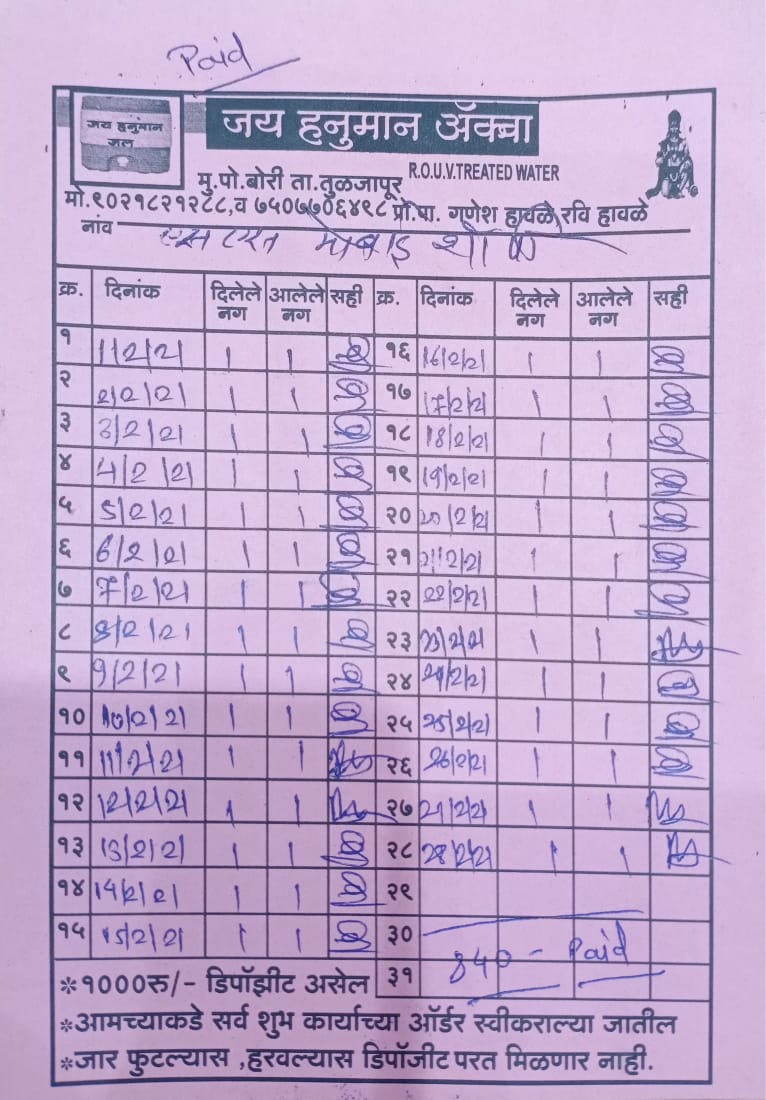 Paid
जय हनुमान
जल
जय हनुमान ॲक्वा
R.O.U.V.TREATED WATER
मु.पो.बोरी ता.तुळजापूर
मो.९०२१८२१२८८,व ७५०७७०६४९८ प्रो.पा. गणेश हावळे, रवि हावळे
नांव
क्र. दिनांक दिलेले नग आलेले नग सही क्र. दिनांक दिलेले नग आलेले नग सही
१ 1/2/21 1 1 १६ 16/2/21 1 1
२ 2/2/21 1 1 १७ 17/2/21 1 1
३ 3/2/21 1 1 १८ 18/2/21 1 1
४ 4/2/21 1 1 १९ 19/2/21 1 1
५ 5/2/21 1 1 २० 20/2/21 1 1
६ 6/2/21 1 1 २१ 21/2/21 1 1
७ 7/2/21 1 1 २२ 22/2/21 1 1
८ 8/2/21 1 1 २३ 23/2/21 1 1
९ 9/2/21 1 1 २४ 24/2/21 1 1
१० 10/2/21 1 1 २५ 25/2/21 1 1
११ 11/2/21 1 1 २६ 26/2/21 1 1
१२ 12/2/21 1 1 २७ 27/2/21 1 1
१३ 13/2/21 1 1 २८ 28/2/21 1 1
१४ 14/2/21 1 1 २९
१५ 15/2/21 1 1 ३०
840 - Paid
३१
*१000रु/- डिपॉझीट असेल
*आमच्याकडे सर्व शुभ कार्याच्या ऑर्डर स्वीकारल्या जातील
*जार फुटल्यास ,हरवल्यास डिपॉजीट परत मिळणार नाही.